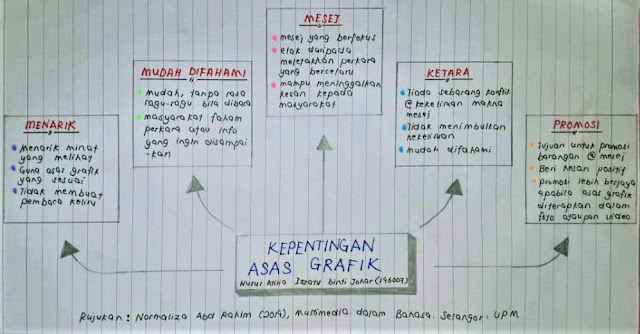 MESEJ
mesej yang berfokus
elak daripada
meletakkan perkara
yang bercelaru
mampu meninggalkan
kesan kepada
masyarakat
MUDAH DIFAHAMI
mudah, tanpa rasa
ragu-ragu bila dibaca
masyarakat faham
perkara atau info
yang ingin disampai
-kan
KETARA
Tiada sebarang konflik
@ kekeliruan makna
mesej
Tidak menimbulkan
kekeliruan
mudah difahami
MENARIK
Menarik minat
yang melihat
Guna asas grafik
yang sesuai
Tidak membuat
pembaca keliru
PROMOSI
Tujuan untuk promosi
barangan @ mesej
Beri kesan positif
promosi lebih berjaya
apabila asas grafik
diterapkan dalam
foto ataupun video
KEPENTINGAN
ASAS GRAFIK
Nurul Izzatu binti Johar (196007)
Rujukan : Normaliza Abd Rahim (2014), Multimedia dalam Bahasa. Selangor : UPM